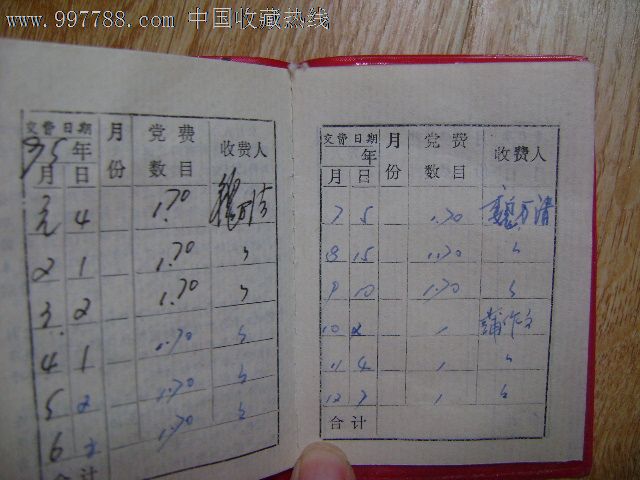 www.997788.com 中国收藏热线
交费日期 月份 党费数目 收费人
75年
月 日
元 4 1.70
2 1 1.70 〃
3 2 1.70 〃
4 1 1.70 〃
5 2 1.70 〃
6 2 1.70 〃
合计
交费日期 月份 党费数目 收费人
年
月 日
7 5 1.70 魏万清
8 15 1.70 〃
9 10 1.70 〃
10 2 1
11 4 1 〃
12 7 1 〃
合计